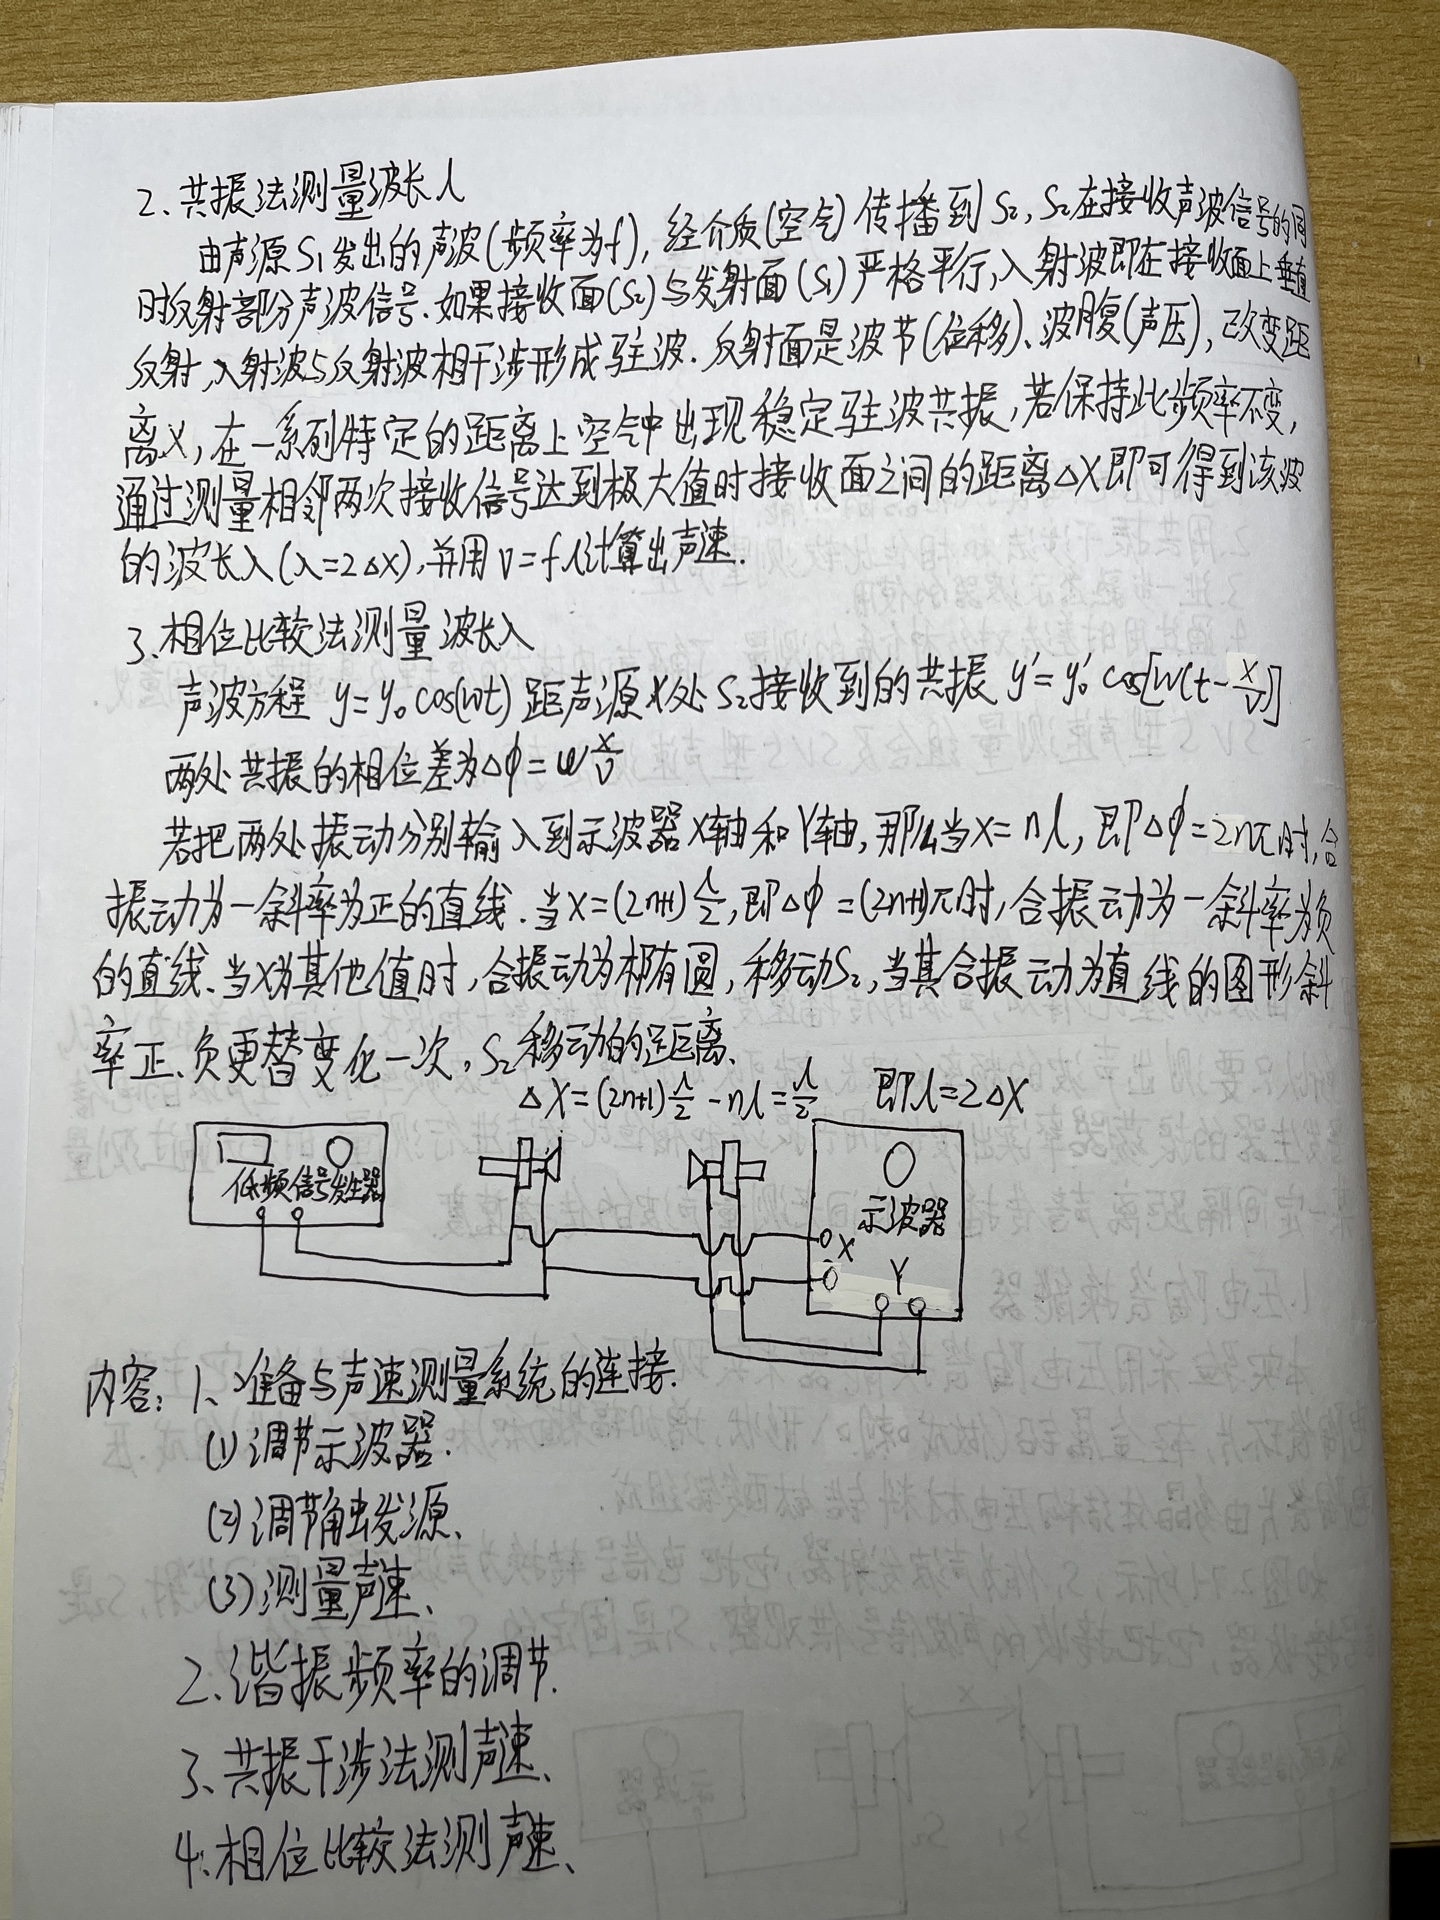 2、共振法测量波长λ
由声源S₁发出的声波(频率为f),经介质(空气)传播到S₂,S₂在接收声波信号的同
时反射部分声波信号.如果接收面(S₂)与发射面(S₁)严格平行,入射波即在接收面上垂直
反射,入射波与反射波相干涉形成驻波.反射面是波节(位移)、波腹(声压),改变距
离X,在一系列特定的距离上空气中出现稳定驻波共振,若保持此频率不变,
通过测量相邻两次接收信号达到极大值时接收面之间的距离ΔX即可得到该波
的波长λ(λ=2ΔX),并用V=fλ计算出声速.
3、相位比较法测量波长λ
声波方程 y=y₀cos(wt) 距声源X处S₂接收到的共振 y'=y₀'cos[w(t-x/v)]
两处共振的相位差为Δφ=ωx/v
若把两处振动分别输入到示波器X轴和Y轴,那么当X=nλ,即Δφ=2nπ时,合
振动为一斜率为正的直线.当X=(2n+1)λ/2,即Δφ=(2n+1)π时,合振动为一斜率为负
的直线、当X为其他值时,合振动为椭圆,移动S₂,当其合振动为直线的图形斜
率正、负更替变化一次,S₂移动的距离、
ΔX=(2n+1)λ/2-nλ=λ/2 即λ=2ΔX
低频信号发生器
示波器
X
Y
内容:1、准备与声速测量系统的连接.
(1)调节示波器.
(2)调节触发源、
(3)测量声速、
2、谐振频率的调节.
3、共振干涉法测声速、
4、相位比较法测声速、